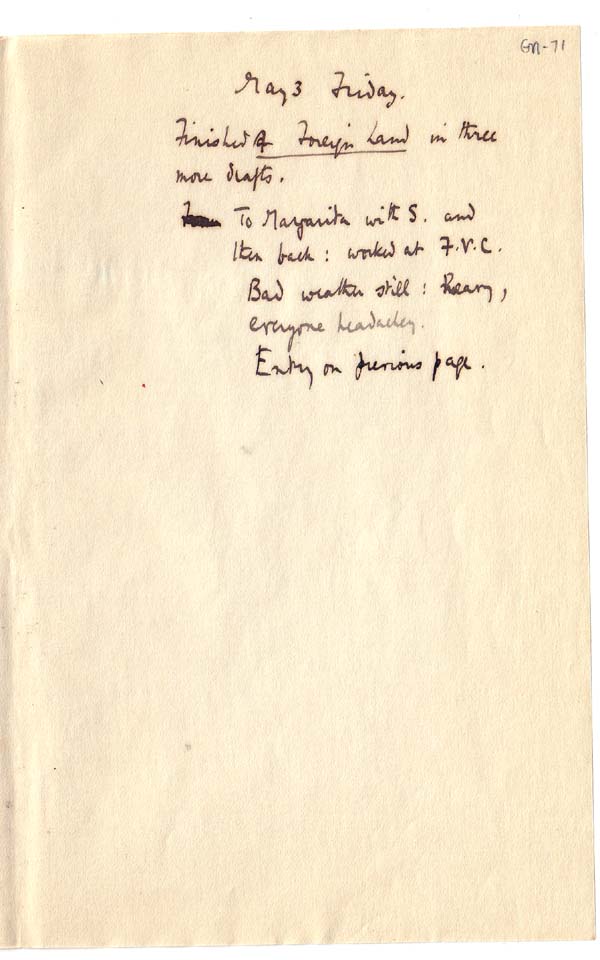 GN-71
May 3 Friday.
Finished A Foreign Land in three
more drafts.
To Margarita with S. and
then back: worked at F.V.C.
Bad weather still: heavy,
everyone headachey.
Entry on previous page.